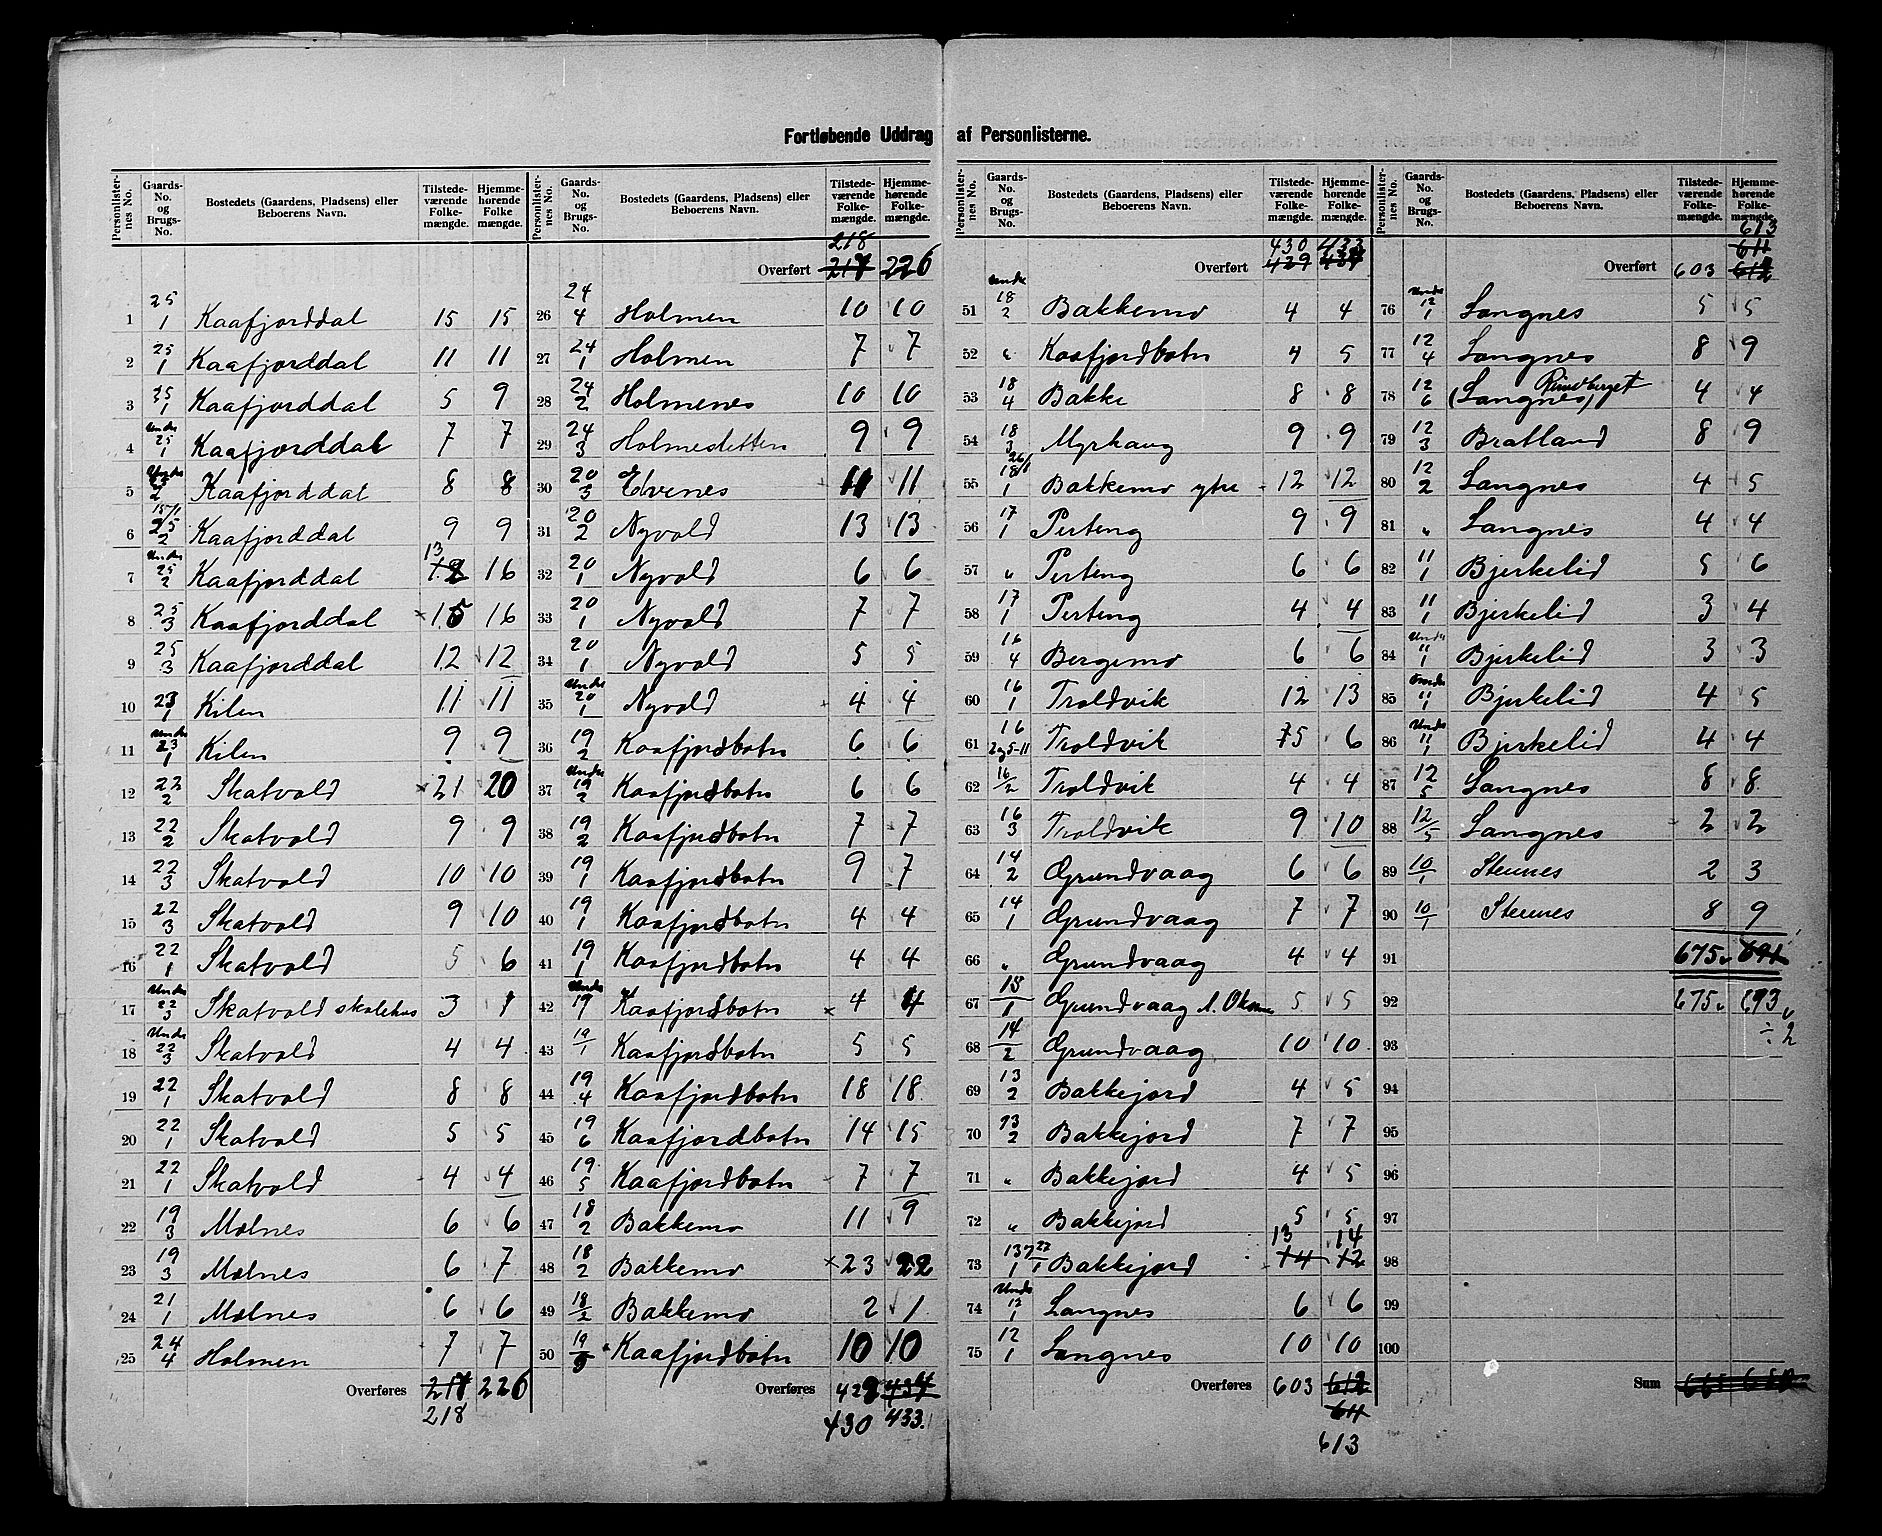 Fortløbende Uddrag af Personlisterne.
Personlister-nes No. Gaards-No. og Brugs-No. Bostedets (Gaardens, Pladsens) eller Beboerens Navn. Tilstede-værende Folke-mængde. Hjemme-hørende Folke-mængde.
1 25/1 Kaafjorddal 15 15
2 25/1 Kaafjorddal 11 11
3 25/1 Kaafjorddal 5 9
4 Under 25/1 Kaafjorddal 7 7
5 Under 2 Kaafjorddal 8 8
6 25/2 Kaafjorddal 9 9
7 Under 25/2 Kaafjorddal 13 16
8 25/3 Kaafjorddal 15 16
9 25/3 Kaafjorddal 12 12
10 23/1 Kilen 11 11
11 Under 23/1 Kilen 9 9
12 22/2 Skatvold 21 20
13 22/2 Skatvold 9 9
14 22/3 Skatvold 10 10
15 22/3 Skatvold 9 10
16 22/1 Skatvold 5 6
17 Under 22/3 Skatvold skolehus 3 1
18 Under 22/3 Skatvold 4 4
19 22/1 Skatvold 8 8
20 22/1 Skatvold 5 5
21 22/1 Skatvold 4 4
22 19/3 Mælnes 6 6
23 19/3 Mælnes 6 7
24 21/1 Mælnes 6 6
25 24/4 Holmen 7 7
Overføres 217 226
218
Personlister-nes No. Gaards-No. og Brugs-No. Bostedets (Gaardens, Pladsens) eller Beboerens Navn. Tilstede-værende Folke-mængde. Hjemme-hørende Folke-mængde.
218
Overført 217 226
26 24/4 Holmen 10 10
27 24/1 Holmen 7 7
28 24/2 Holmenes 10 10
29 24/3 Holmesletten 9 9
30 20/3 Elvenes 11 11
31 20/2 Nyvold 13 13
32 20/1 Nyvold 6 6
33 20/1 Nyvold 7 7
34 20/1 Nyvold 5 5
35 Under 20/1 Nyvold 4 4
36 19/2 Kaafjordbotn 6 6
37 Under 19/2 Kaafjordbotn 6 6
38 19/2 Kaafjordbotn 7 7
39 19/1 Kaafjordbotn 9 7
40 19/1 Kaafjordbotn 4 4
41 19/1 Kaafjordbotn 4 4
42 Under 19 Kaafjordbotn 4 4
43 19/1 Kaafjordbotn 5 5
44 19/4 Kaafjordbotn 18 18
45 19/6 Kaafjordbotn 14 15
46 19/5 Kaafjordbotn 7 7
47 18/2 Bakkemo 11 9
48 18/2 Bakkemo 23 22
49 18/2 Bakkemo 2 1
50 19/3 Kaafjordbotn 10 10
Overføres 429 434
430 433
Personlister-nes No. Gaards-No. og Brugs-No. Bostedets (Gaardens, Pladsens) eller Beboerens Navn. Tilstede-værende Folke-mængde. Hjemme-hørende Folke-mængde.
430 433
Overført 429 434
51 Under 18/2 Bakkemo 4 4
52 " Kaafjordbotn 4 5
53 18/4 Bakke 8 8
54 18/3 Myrhaug 9 9
55 26/1 18/1 Bakkemo ytre 12 12
56 17/1 Perteng 9 9
57 " Perteng 6 6
58 17/1 Perteng 4 4
59 16/4 Bergemo 6 6
60 16/1 Troldvik 12 13
61 16 2og5-11 Troldvik 5 6
62 16/2 Troldvik 4 4
63 16/3 Troldvik 9 10
64 14/2 Grundvaag 6 6
65 14/1 Grundvaag 7 7
66 " Grundvaag 4 4
67 15/1 Grundvaag 5 5
68 14/2 Grundvaag 10 10
69 13/2 Bakkejord 4 5
70 13/2 Bakkejord 7 7
71 " Bakkejord 4 5
72 " Bakkejord 5 5
13 14
73 13/1 27/1 Bakkejord 14 12
74 Under 12/1 Langnes 6 6
75 12/1 Langnes 10 10
Overføres 603 612
611
613
Personlister-nes No. Gaards-No. og Brugs-No. Bostedets (Gaardens, Pladsens) eller Beboerens Navn. Tilstede-værende Folke-mængde. Hjemme-hørende Folke-mængde.
613
611
Overført 603 612
76 Under 12/1 Langnes 5 5
77 12/4 Langnes 8 9
78 12/6 (Langnes) Rundberget 4 4
79 12/3 Bratland 8 9
80 12/2 Langnes 4 5
81 " Langnes 4 4
82 11/1 Bjerkelid 5 6
83 11/1 Bjerkelid 3 4
84 Under 11/1 Bjerkelid 3 3
85 Under 11/1 Bjerkelid 4 5
86 Under 11/1 Bjerkelid 4 4
87 12/5 Langnes 8 8
88 12/5 Langnes 2 2
89 10/1 Stennes 2 3
90 10/1 Stennes 8 9
91 675 691
92 675 693
93 ÷ 2
94
95
96
97
98
99
100
Sum